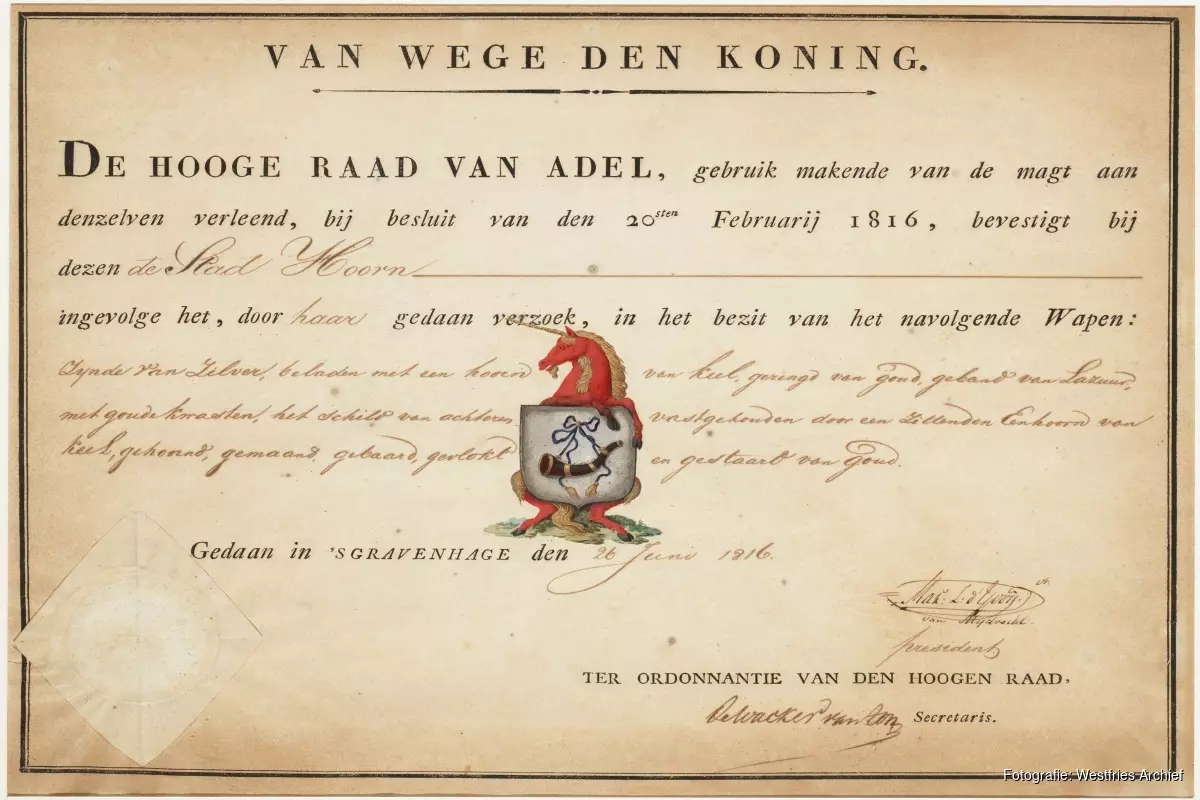 VAN WEGE DEN KONING.
DE HOOGE RAAD VAN ADEL, gebruik makende van de magt aan
denzelven verleend, bij besluit van den 20sten Februarij 1816, bevestigt bij
dezen de Stad Hoorn
ingevolge het, door haar gedaan verzoek, in het bezit van het navolgende Wapen:
Zynde van Zilver, beladen met een hoorn van keel, geringd van goud, geband van Lazuur,
met goude kwasten, het schild van achteren vastgehouden door een Zittenden Eenhoorn van
keel, gehoornd, gemaand, gebaard, geklokt en gestaart van Goud.
Gedaan in 'SGRAVENHAGE den 26 Juni 1816.
president
TER ORDONNANTIE VAN DEN HOOGEN RAAD,
Secretaris.
Fotografie: Westfries Archief